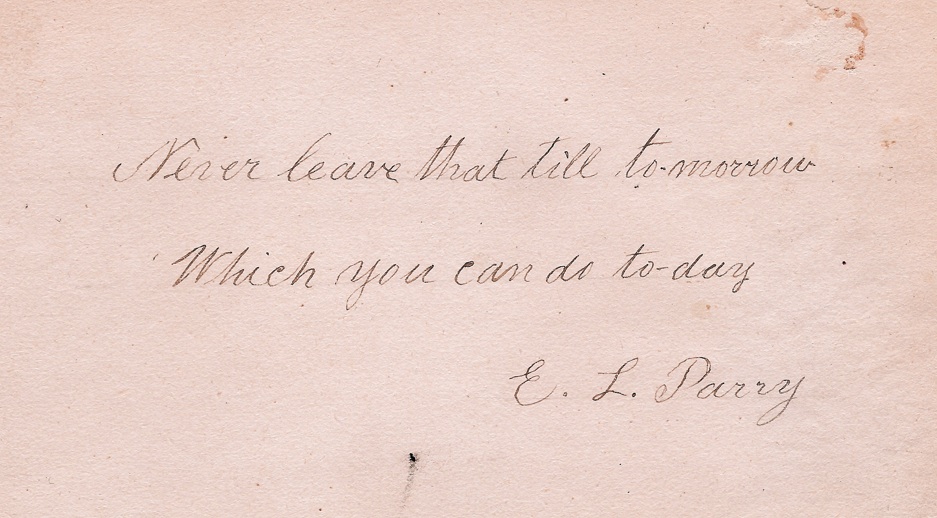 Never leave that till to-morrow
Which you can do to-day
E. L. Parry